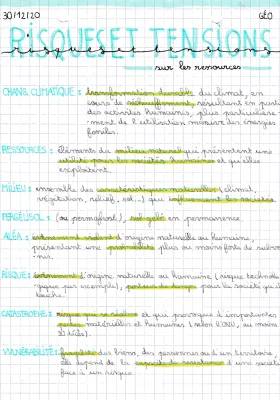 30/12/20 GÉO
RISQUES ET TENSIONS
risques et tensions
sur les ressources
CHANG. CLIMATIQUE : transformation durable du climat, en
cours de réchauffement, résultant en partie
des activités humaines, plus particulière-
-ment de l'utilisation massive des énergies
fossiles.
RESSOURCES : éléments du milieu naturel qui présentent une
utilité pour les sociétés humaines et qu'elles
exploitent.
MILIEU : ensemble des caractéristiques naturelles (climat,
végétation, relief, sol...) qui influencent les sociétés.
PERGÉLISOL : (ou permafrost), sol gelé en permanence.
ALÉA : événement violent d'origine naturelle ou humaine,
présentant une probabilité plus ou moins forte de subve-
-nir.
RISQUE : événement d'origine naturelle ou humaine (risque technolo-
-gique par exemple), porteur de danger pour la société qu'il
touche.
CATASTROPHE : risque qui se réalise et qui provoque d'importantes
pertes matérielles et humaines (selon l'ONU, au moins
décès).
VULNÉRABILITÉ : fragilité des biens, des personnes ou d'un territoire,
elle dépend de la capacité de d'une société
face à un risque.